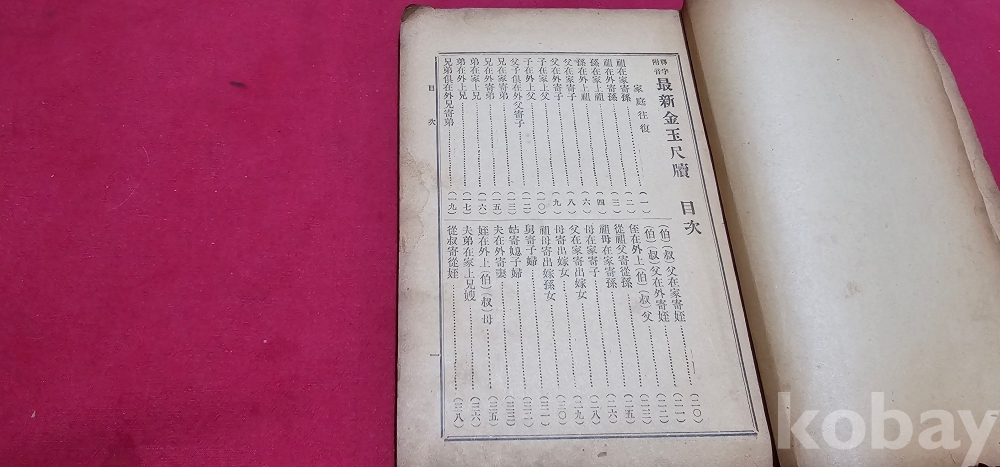 釋字
附音
最新金玉尺牘 目次
家庭往復
祖在家寄孫……(一)
祖在外寄孫……(二)
孫在家上祖……(三)
孫在外上祖……(四)
父在家寄子……(六)
父在外寄子……(八)
子在家上父……(九)
子在外上父……(一〇)
父子俱在外父寄子……(一二)
兄在家寄弟……(一三)
兄在外寄弟……(一五)
弟在家上兄……(一六)
弟在外上兄……(一七)
兄弟俱在外兄寄弟……(一九)
(伯)(叔)父在家寄姪……(二〇)
(伯)(叔)父在外寄姪……(二一)
姪在外上(伯)(叔)父……(二二)
從祖父寄從孫……(二三)
祖母在家寄孫……(二五)
母在家寄子……(二六)
父在家寄出嫁女……(二八)
母寄出嫁女……(二九)
祖母寄出嫁孫女……(三〇)
舅寄子婦……(三一)
姑寄媳子婦……(三二)
夫在外寄妻……(三三)
姪在外上(伯)(叔)母……(三五)
夫弟在家上兄嫂……(三六)
從叔寄從姪……(三八)
目次
一
kobay